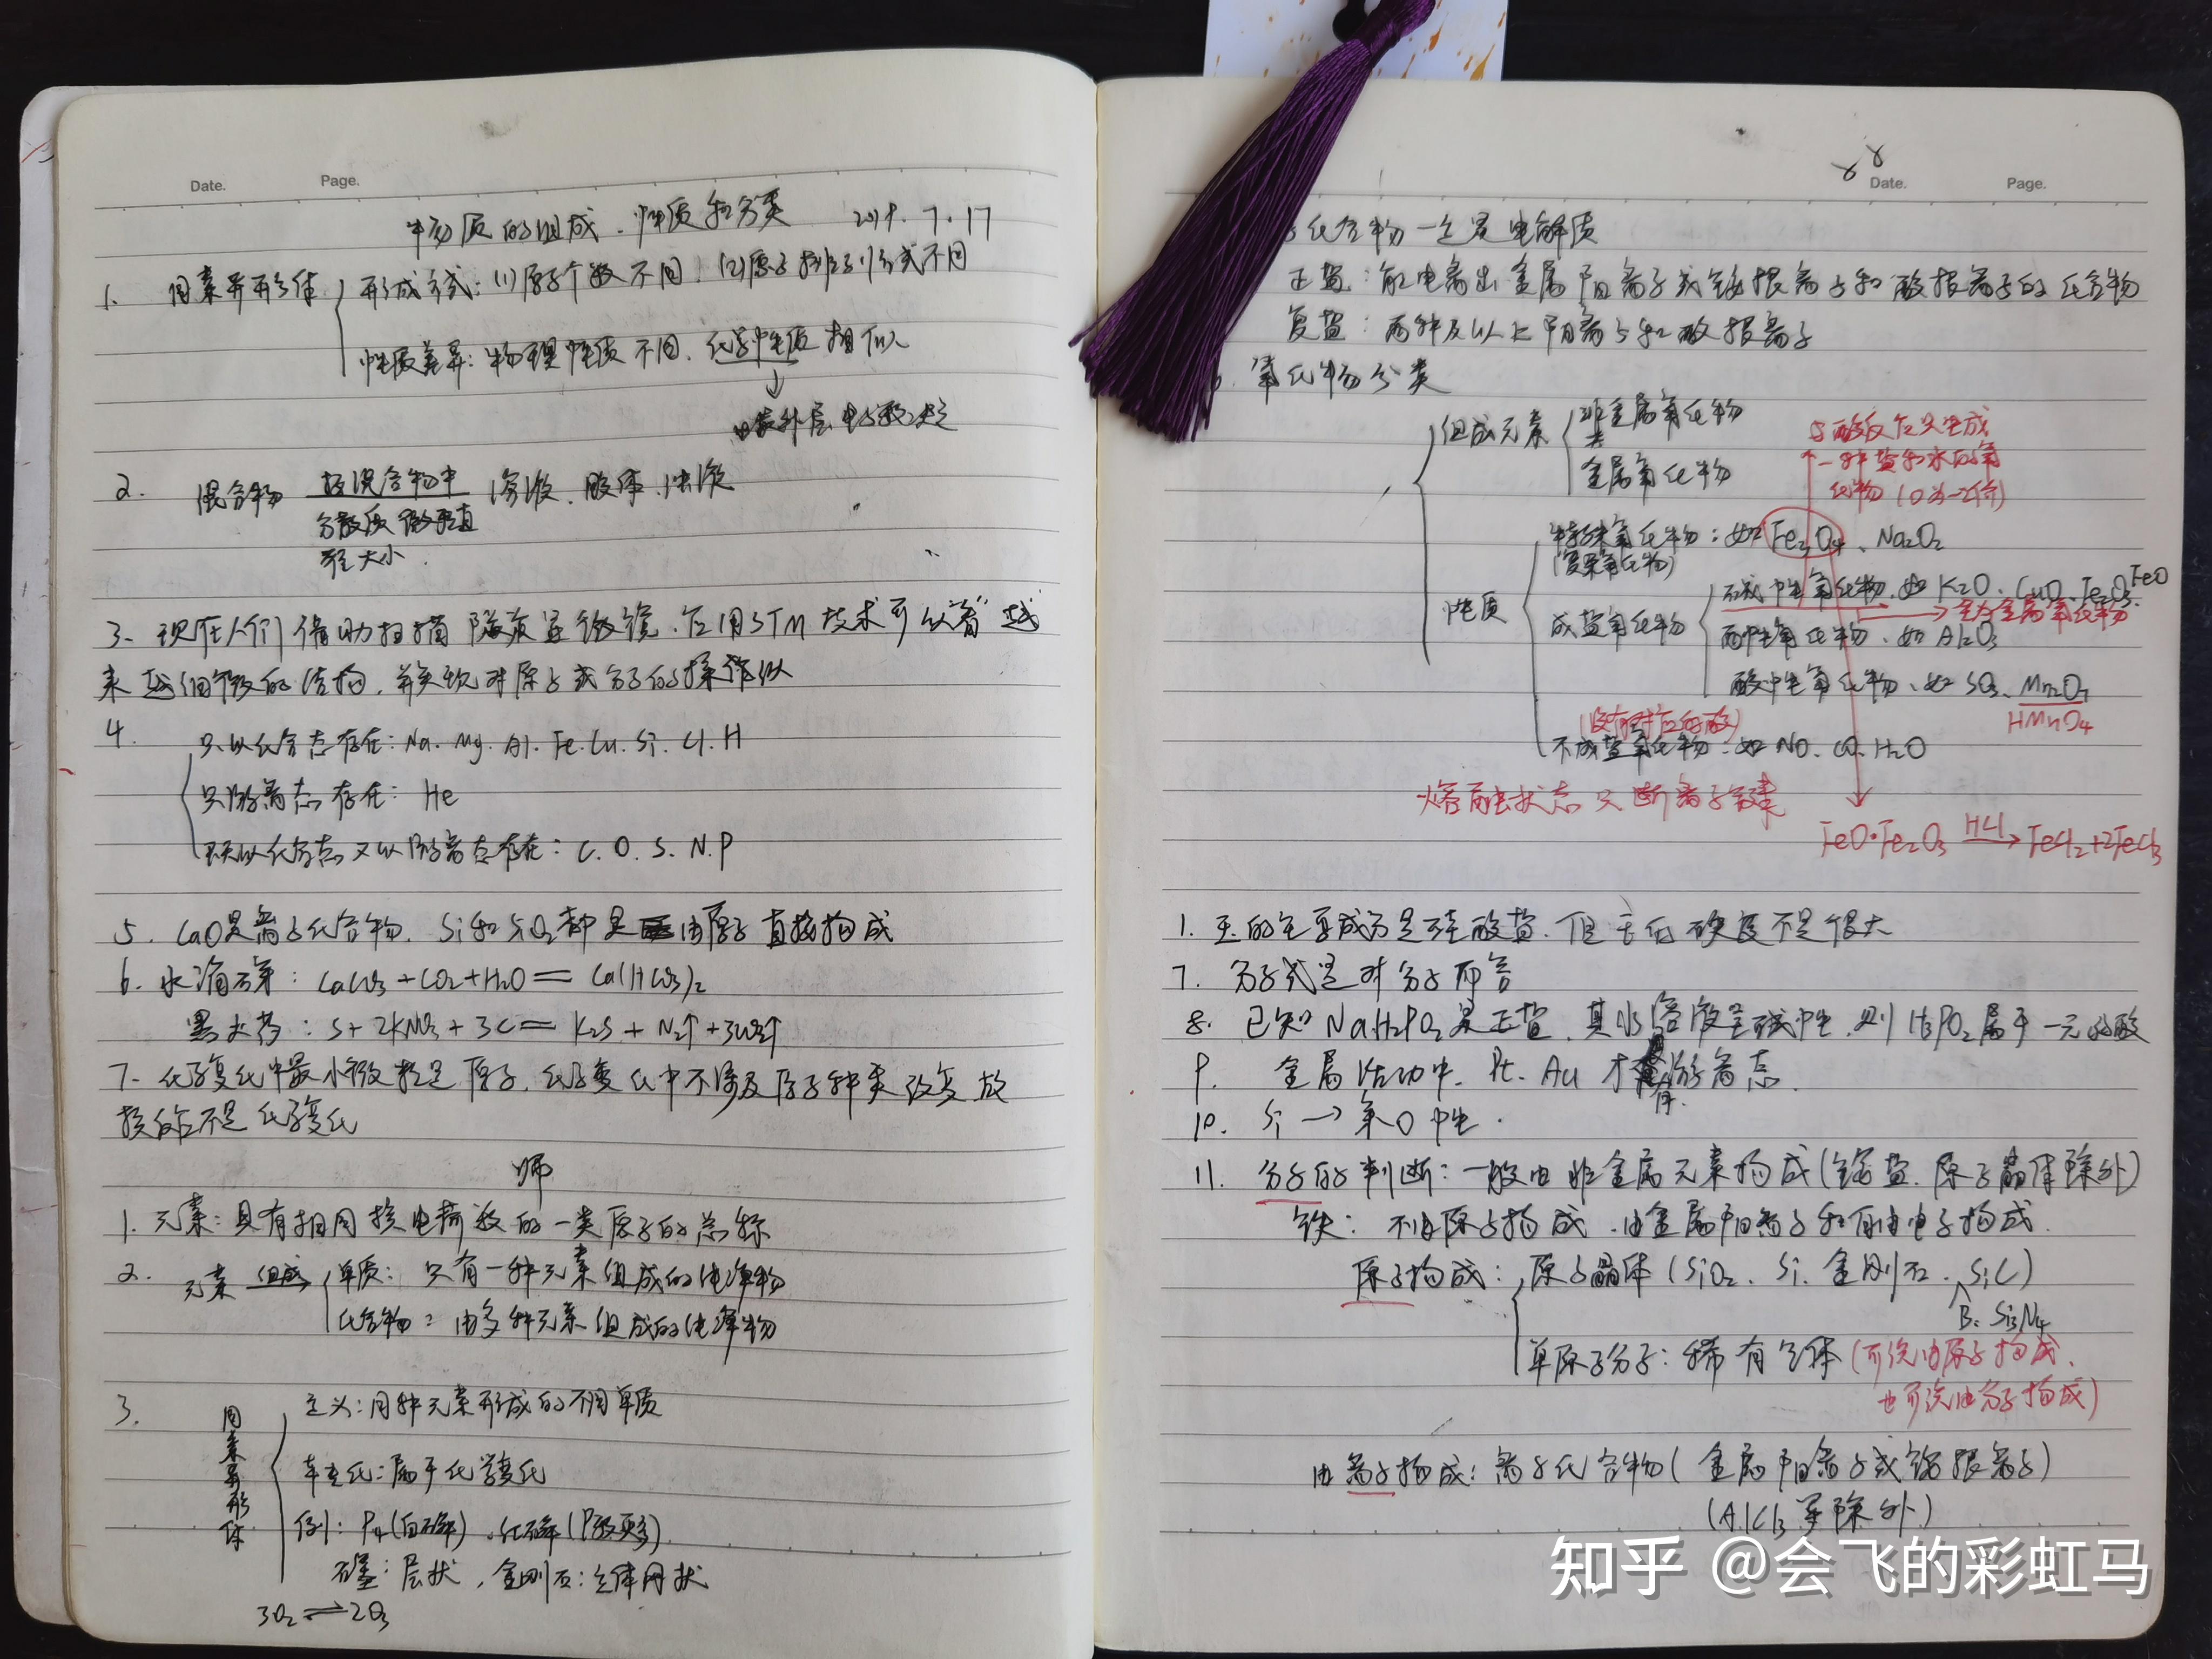 Date. Page.
物质的组成、性质和分类 2019.7.17
1. 同素异形体 形成方式:(1)原子个数不同,(2)原子排列方式不同
性质差异:物理性质不同、化学性质相似
↓
由最外层电子数决定
2. 混合物 按混合物中分散质微粒直径大小 溶液、胶体、浊液
3. 现在人们借助扫描隧道显微镜、应用STM技术可以"看"越
来越细微的结构,并实现对原子或分子的操纵
4. 只以化合态存在:Na. Mg. Al. Fe. Cu. Si. Cl. H
只游离态存在: He
既以化合态又以游离态存在: C. O. S. N. P
5. CaO是离子化合物. Si和SiO₂都是由原子直接构成
6. 水滴石穿: CaCO₃+CO₂+H₂O═Ca(HCO₃)₂
黑火药: S+2KNO₃+3C═K₂S+N₂↑+3CO₂↑
7. 化学变化中最小微粒是原子,化学变化中不涉及原子种类改变 故
核反应不是化学变化
师
1. 元素:具有相同核电荷数的一类原子的总称
2. 元素 组成→ 单质: 只有一种元素组成的纯净物
化合物: 由多种元素组成的纯净物
3. 同素异形体
定义:同种元素形成的不同单质
转化:属于化学变化
例: P₄(白磷)、红磷(P数更多)
石墨:层状,金刚石:立体网状
3O₂⇌2O₃
Date. Page.
化合物一定是电解质
正盐:能电离出金属阳离子或铵根离子和酸根离子的化合物
复盐:两种及以上阳离子和酸根离子
氧化物分类
组成元素 非金属氧化物
金属氧化物
与酸反应只生成
一种盐和水的氧
化物(O为-2价)
性质
特殊氧化物:如Fe₃O₄、Na₂O₂
(复杂氧化物)
成盐氧化物
碱性氧化物、如K₂O、CuO、Fe₂O₃、FeO
→全为金属氧化物
两性氧化物、如Al₂O₃
酸性氧化物、如SO₃、Mn₂O₇
HMnO₄
(没有对应的酸)
不成盐氧化物:如NO、CO、H₂O
熔融状态只断离子键
FeO·Fe₂O₃ HCl→ FeCl₂+2FeCl₃
1. 玉的主要成分是硅酸盐、但 硬度不是很大
7. 分子式是对分子而言
8. 已知NaH₂PO₂是正盐,其水溶液呈碱性,则H₃PO₂属于一元弱酸
9. 金属活动中、Pt、Au才有游离态.
10. 个→ 中性.
11. 分子的判断:一般由非金属元素构成(铵盐、原子晶体除外)
铁: 不由原子构成、由金属阳离子和自由电子构成.
原子构成: 原子晶体(SiO₂、Si、金刚石、SiC)
B、Si₃N₄
单原子分子:稀有气体(可说由原子构成、
也可说由分子构成)
由离子构成:离子化合物(金属阳离子或铵根离子)
(AlCl₃等除外)
知乎 @会飞的彩虹马